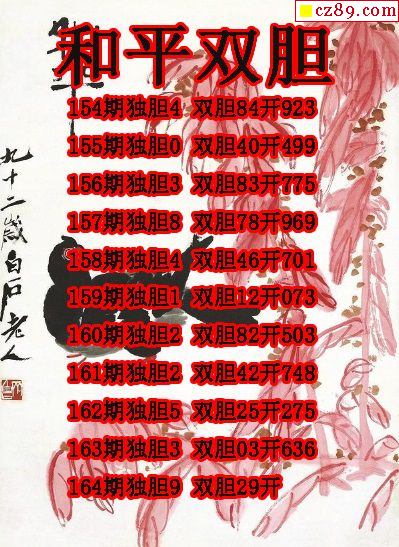 cz89.com
和平双胆
154期独胆4 双胆84开923
155期独胆0 双胆40开499
156期独胆3 双胆83开775
157期独胆8 双胆78开969
158期独胆4 双胆46开701
159期独胆1 双胆12开073
160期独胆2 双胆82开503
161期独胆2 双胆42开748
162期独胆5 双胆25开275
163期独胆3 双胆03开636
164期独胆9 双胆29开
九十二歲白石老人